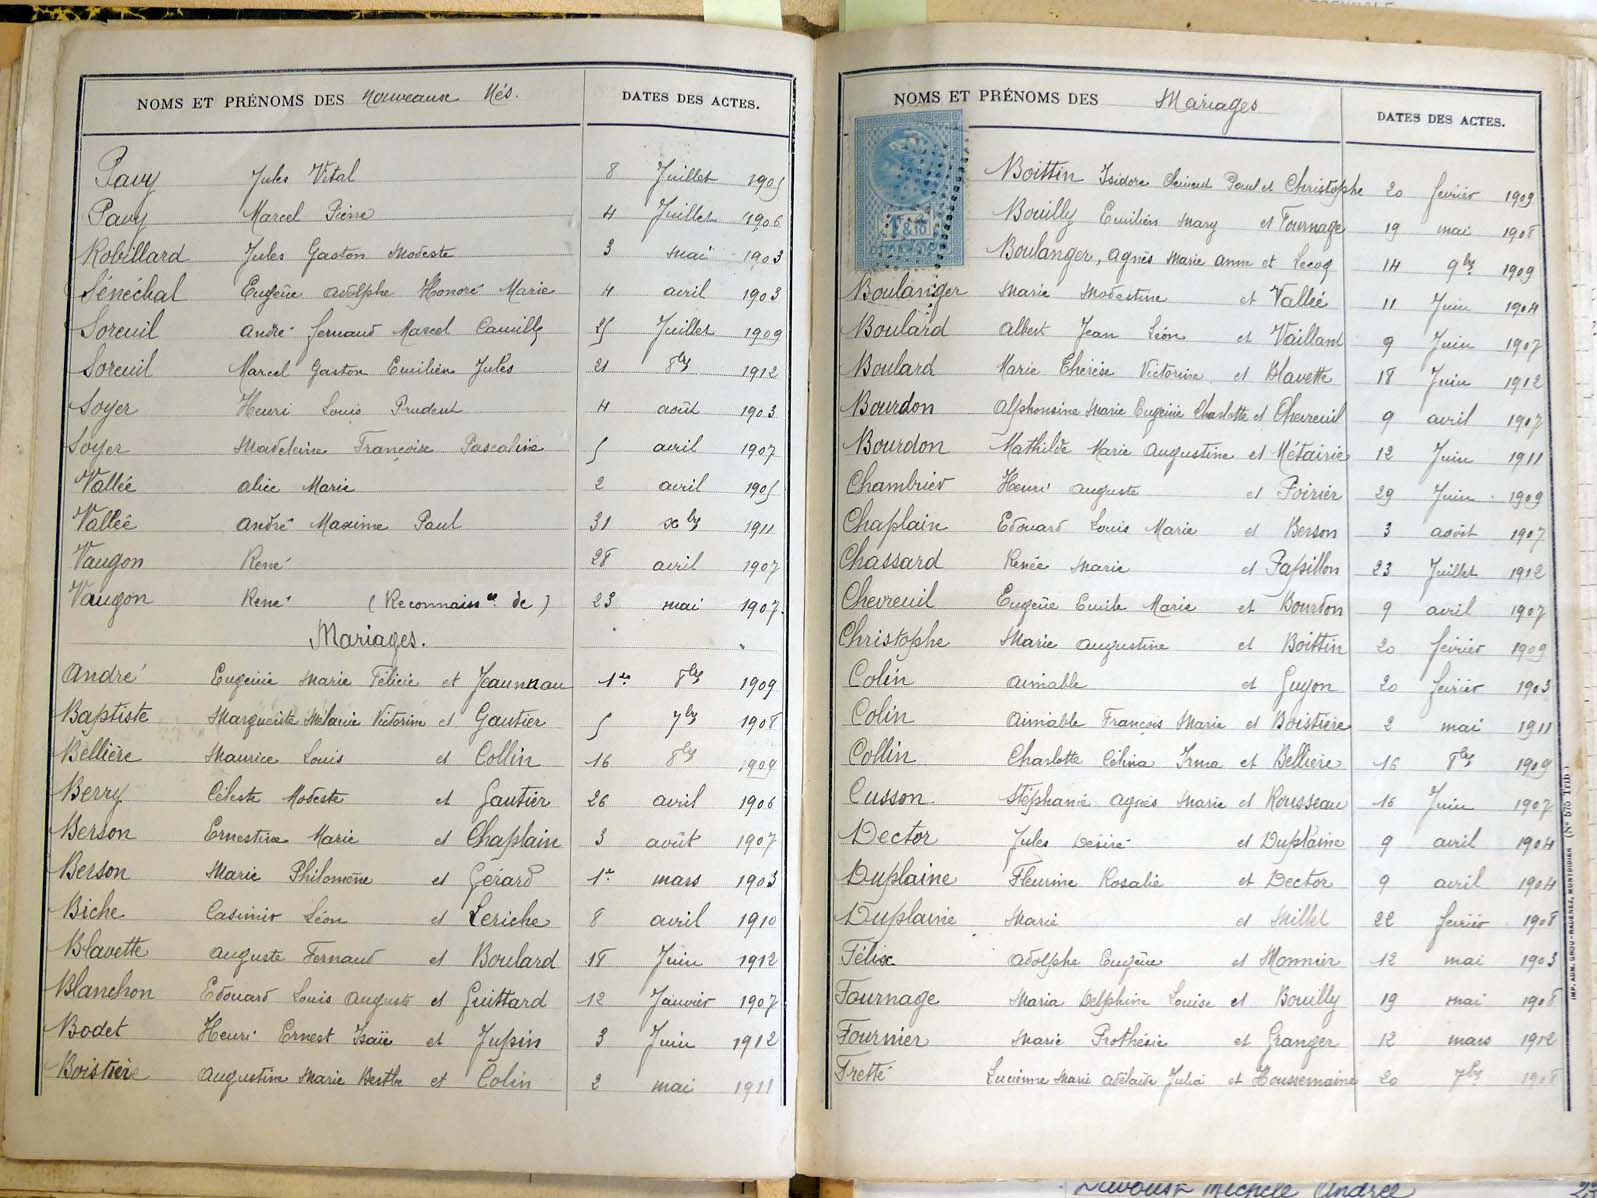 NOMS ET PRÉNOMS DES Nouveaux Nés. DATES DES ACTES.
Pavy Jules Vital 8 Juillet 1905
Pavy Marcel Pierre 4 Juillet 1906
Robillard Jules Gaston Modeste 3 mai 1903
Sénéchal Eugène Adolphe Honoré Marie 4 avril 1903
Soreuil André Fernand Marcel Camille 25 Juillet 1909
Soreuil Marcel Gaston Emilien Jules 21 8bre 1912
Soyer Henri Louis Prudent 4 août 1903
Soyer Madeleine Françoise Pascaline 5 avril 1907
Vallée Alice Marie 2 avril 1905
Vallée André Maxime Paul 31 xbre 1911
Vaugon René 28 avril 1907
Vaugon René (Reconnaissce de) 23 mai 1907.
Mariages.
André Eugénie Marie Félicie et Jeaunnau 1er 8bre 1909
Baptiste Marguerite Mélanie Victorine et Gautier 5 7bre 1908
Bellière Maurice Louis et Collin 16 8bre 1909
Berry Céleste Modeste et Gautier 26 avril 1906
Berson Ernestine Marie et Chaplain 3 août 1907
Berson Marie Philomène et Gérard 1er mars 1903
Biche Casimir Léon et Leriche 8 avril 1910
Blavette Auguste Fernand et Boulard 18 Juin 1912
Blanchon Edouard Louis Auguste et Guittard 12 Janvier 1907
Bodet Henri Ernest Isaïe et Jupin 3 Juin 1912
Boistière Augustine Marie Berthe et Colin 2 mai 1911
NOMS ET PRÉNOMS DES Mariages DATES DES ACTES.
Boittin Isidore Clément Paul et Christophe 20 février 1909
Bouilly Emilien Mary et Fournage 19 mai 1908
Boulanger, Agnès Marie Anne et Lecoq 14 9bre 1909
Boulanger Marie Modestine et Vallée 11 Juin 1904
Boulard Albert Jean Léon et Vaillant 9 Juin 1907
Boulard Marie Thérèse Victorine et Blavette 18 Juin 1912
Bourdon Alphonsine Marie Eugénie Charlotte et Chevreuil 9 avril 1907
Bourdon Mathilde Marie Augustine et Métairie 12 Juin 1911
Chambrier Henri Auguste et Poirier 29 Juin 1909
Chaplain Edouard Louis Marie et Berson 3 août 1907
Chassard Renée Marie et Papillon 23 Juillet 1912
Chevreuil Eugène Emile Marie et Bourdon 9 avril 1907
Christophe Marie Augustine et Boittin 20 février 1909
Colin Aimable et Guyon 20 février 1903
Colin Aimable François Marie et Boistière 2 mai 1911
Collin Charlotte Célina Irma et Bellière 16 8bre 1909
Cusson Stéphanie Agnès Marie et Rousseau 16 Juin 1907
Dector Jules Désiré et Duplaine 9 avril 1904
Duplaine Fleurine Rosalie et Dector 9 avril 1904
Duplaine Marie et Millet 22 février 1908
Félix Adolphe Eugène et Monnier 12 mai 1903
Fournage Maria Delphine Louise et Bouilly 19 mai 1908
Fournier Marie Prothésie et Granger 12 mars 1912
Fretté Lucienne Marie Adélaïde Julia et Houssemaine 20 7bre 1908
(N° 575 Trib.)